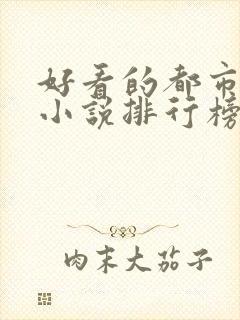 好看的都市
小说排行榜
肉末大茄子